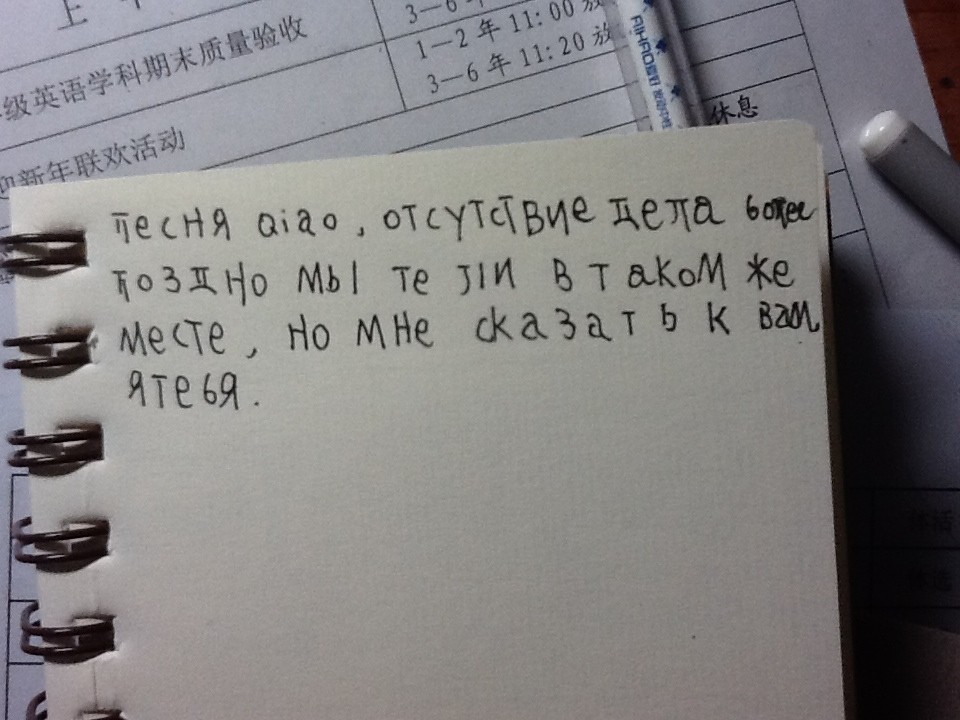 上午
3—6年
级英语学科期末质量验收
1—2年 11:00 放
3—6年 11:20 放
AIHAO
休息
迎新年联欢活动
песня qiao, отсутствие дела более
поздно мы те ли в таком же
месте, но мне сказать к вам
ятебя.